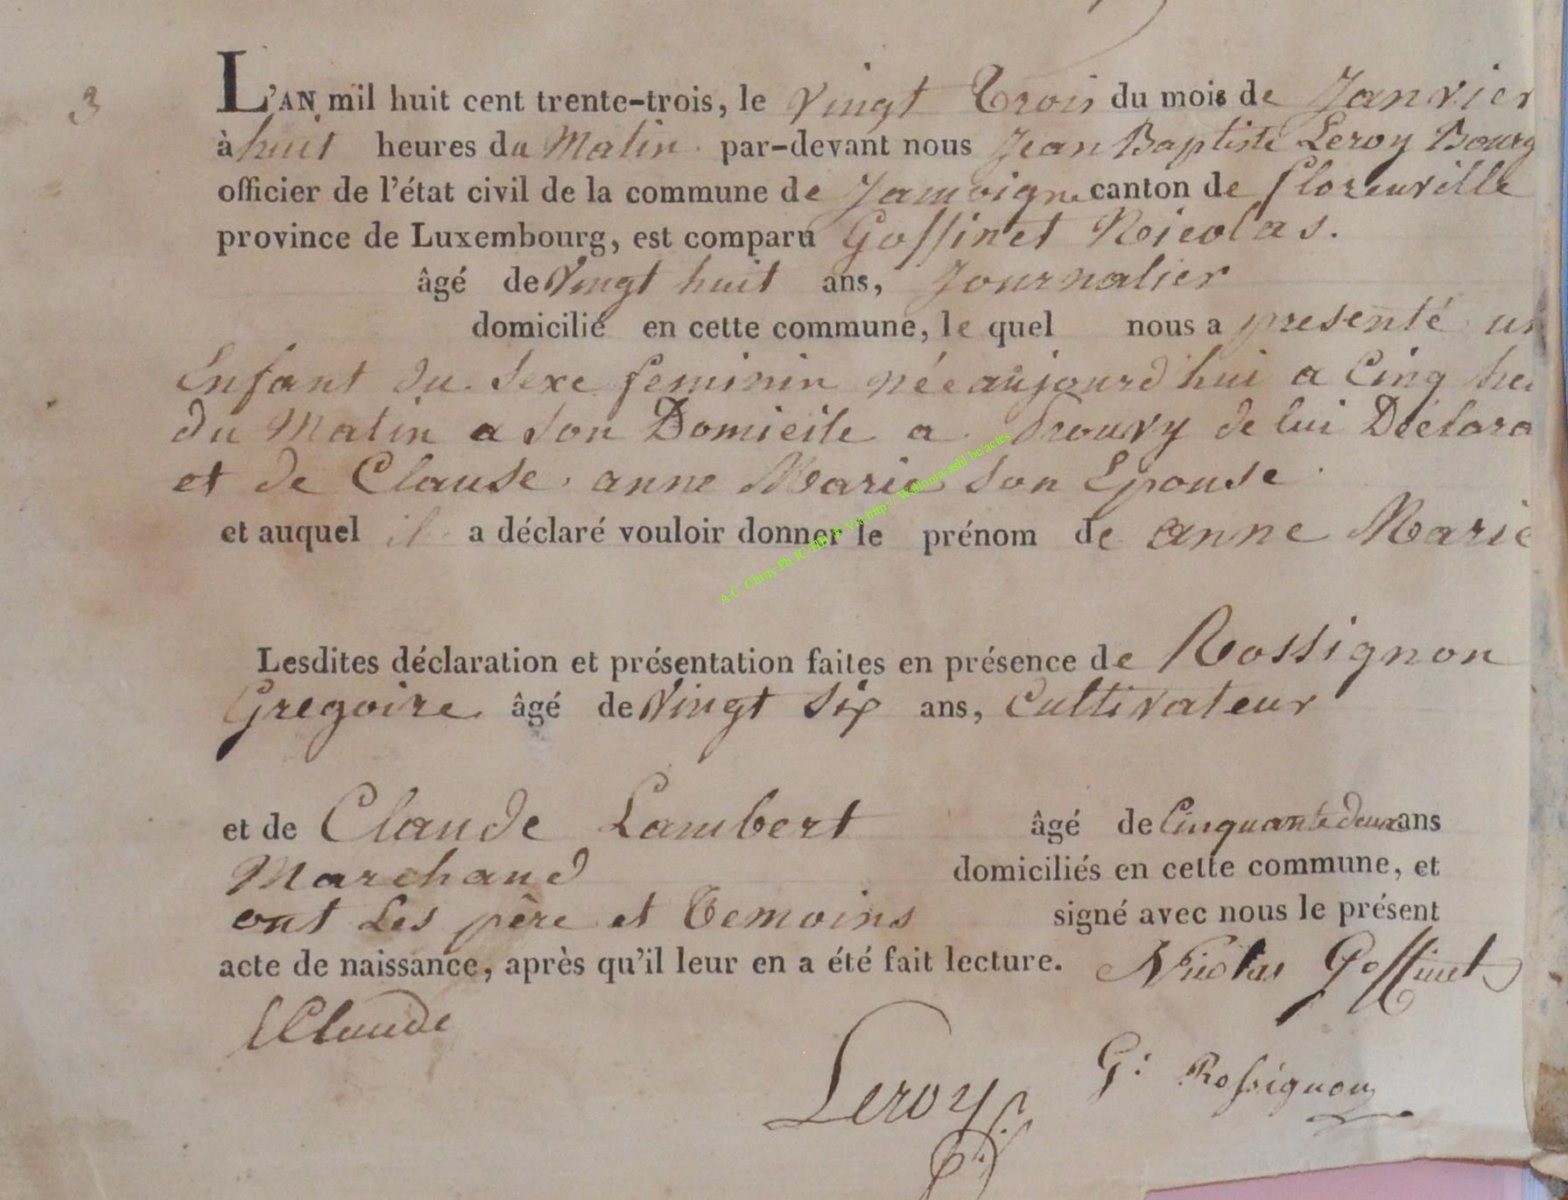 3
L'AN mil huit cent trente-trois, le vingt Trois du mois de Janvier
à huit heures du Matin par-devant nous Jean Baptiste Leroy Bourg
officier de l'état civil de la commune de Jamoigne canton de florenville
province de Luxembourg, est comparu Goffinet Nicolas.
âgé de Vingt huit ans, Journalier
domicilié en cette commune, le quel nous a presenté un
Enfant du Sexe feminin née aujourd'hui a Cinq heu
du Matin a son Domicile a Prouvy de lui Déclara
et de Clause anne Marie son Epouse
et auquel il a déclaré vouloir donner le prénom de anne Marie
A.C. Chiny Ph
Lesdites déclaration et présentation faites en présence de Rossignon
Gregoire âgé de Vingt Six ans, Cultivateur
et de Claude Lambert âgé de Cinquante deux ans
Marchand domiciliés en cette commune, et
ont Les père et Temoins signé avec nous le présent
acte de naissance, après qu'il leur en a été fait lecture. Nicolas Goffinet
LClaude
Leroy
G: Rossignon